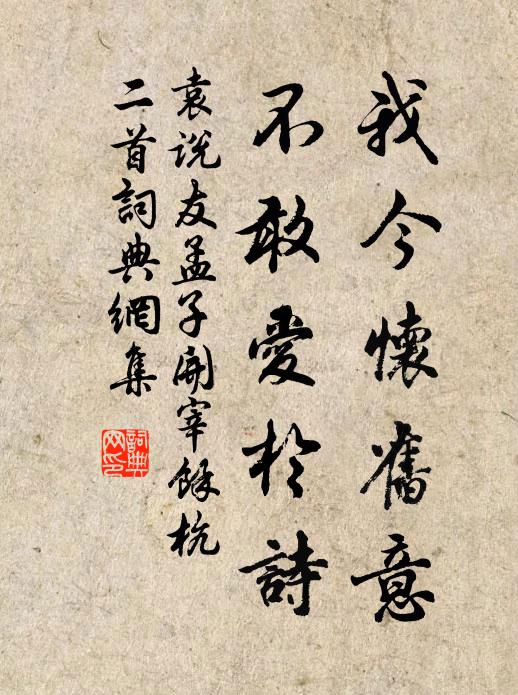 我今懷舊意
不敢愛於詩
袁說友孟子開宰餘杭
二首詞典網集
詞典網印